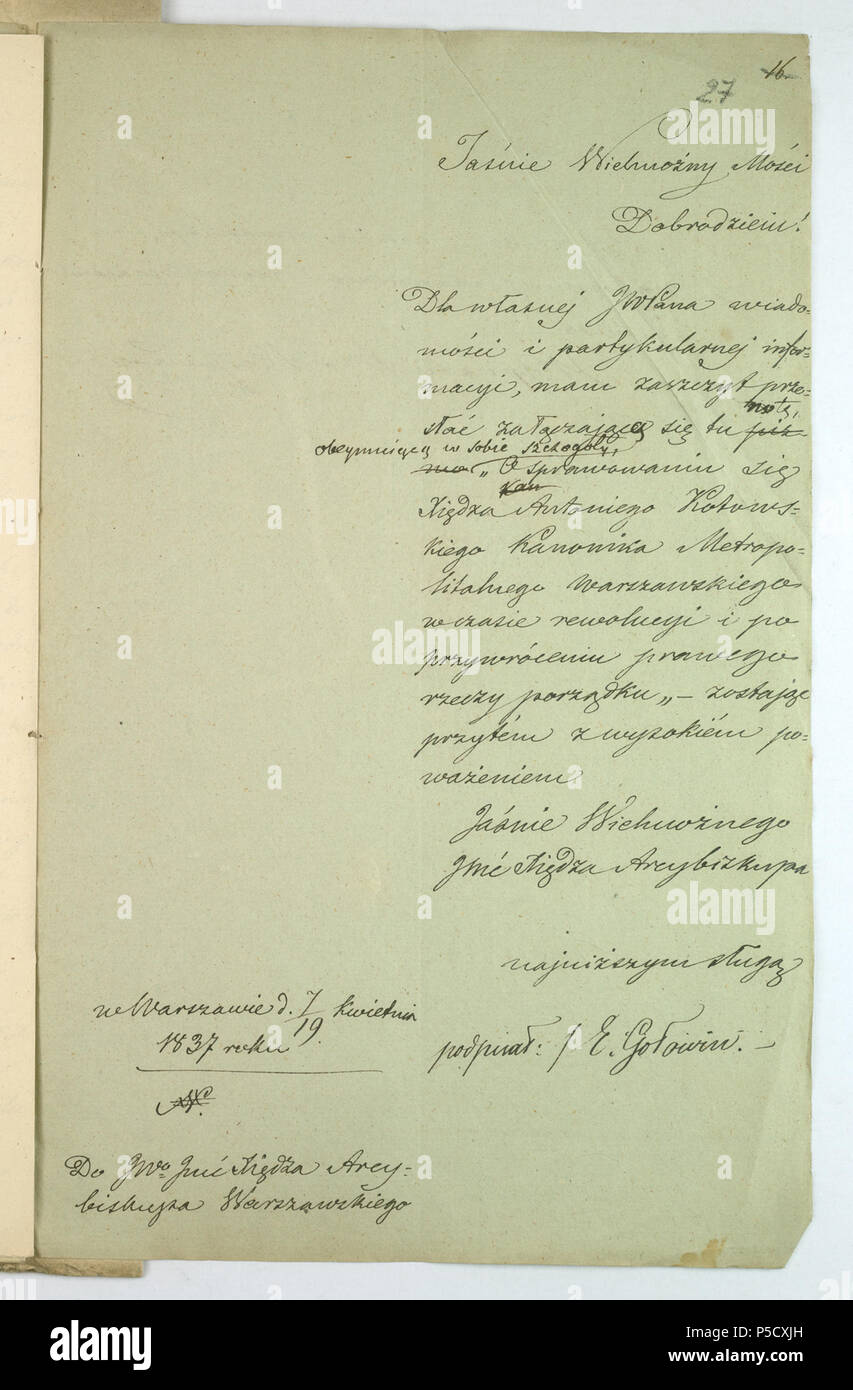 16
27
Jaśnie Wielmożny Mości
Dobrodzieiu!
Dla własnej JWPana wiado-
mości i partykularnej infor-
macyi, mam zaszczyt prze-
notę,
słać załączającą się tu pis-
obeymuiącą w sobie szczegóły,
mo „O sprawowaniu się
Kan
Xiędza Antoniego Kotows-
kiego Kanonika Metropo-
litalnego Warszawskiego
w czasie rewolucyi i po
przywróceniu prawego
rzeczy porządku„ – zostając
przytém z wysokiém po-
ważeniem
Jaśnie Wielmożnego
Jmć Xiędza Arcybiskupa
najniższym sługą
w Warszawie d. 7/19 Kwietnia
1837 roku
podpisał: / E. Gołowin. –
N.
Do JWo Jmć Xiędza Arcy-
biskupa Warszawskiego
alamy
alamy
Image ID: P5CXJH
www.alamy.com